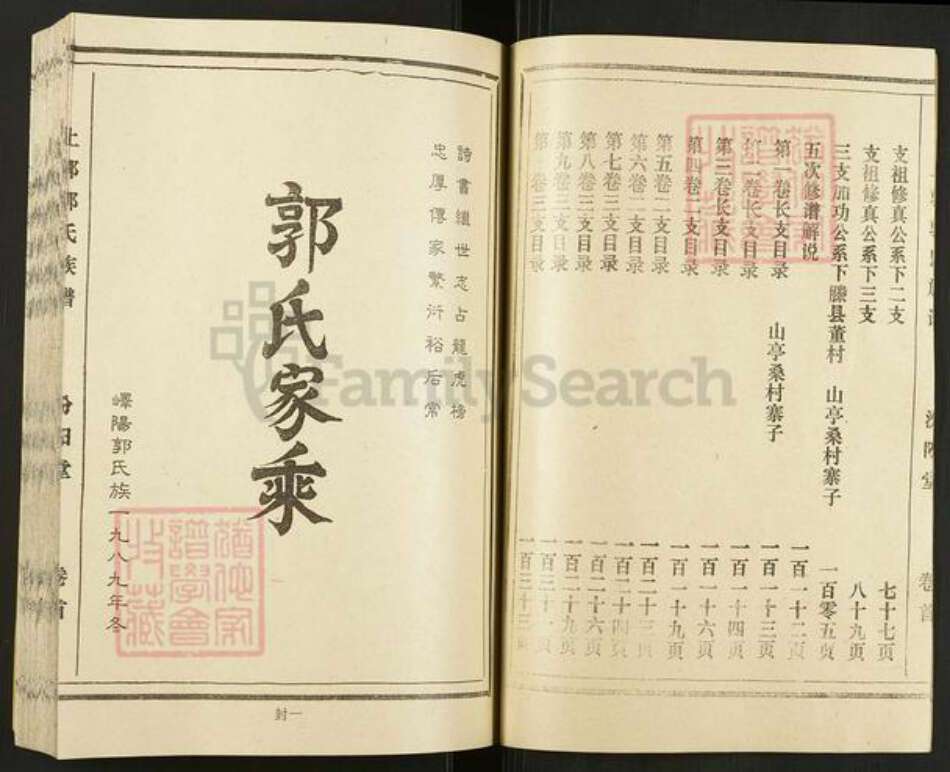 支祖修真公系下二支 七十七页
支祖修真公系下三支 八十九页
三支加功公系下滕县董村 山亭桑村寨子 一百零五页
五次修谱解说 一百一十二页
第一卷长支目录 山亭桑村寨子 一百一十三页
第二卷长支目录 一百一十四页
第三卷长支目录 一百一十六页
第四卷二支目录 一百一十九页
第五卷二支目录 一百二十三
第六卷二支目录 一百二十四
第七卷二支目录 一百二十六
第八卷三支目录 一百二十九
第九卷三支目录 一百三十
卷三支目录 一百三十三
卷首
詩書繼世志占龍虎榜
忠厚傳家繁衍裕后常
郭氏家乘
嶧陽郭氏族一九八九年冬
封一
郭氏族譜
汾阳堂
卷首
譜學會
收藏
FamilySearch